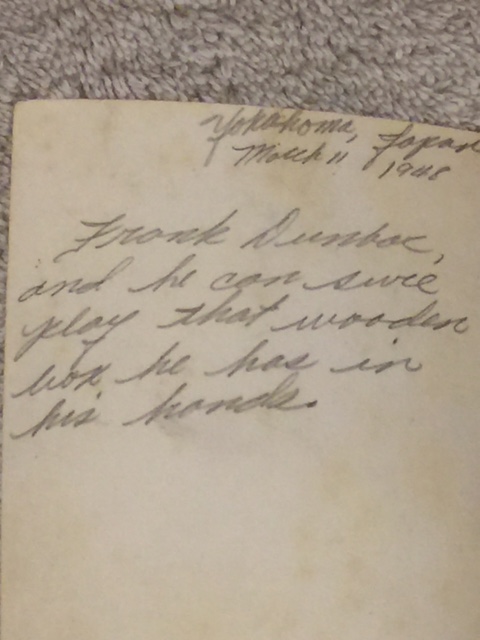 Yokahoma, Japan
March 11 1948
Frank Dunbar,
and he can sure
play that wooden
box he has in
his hands.